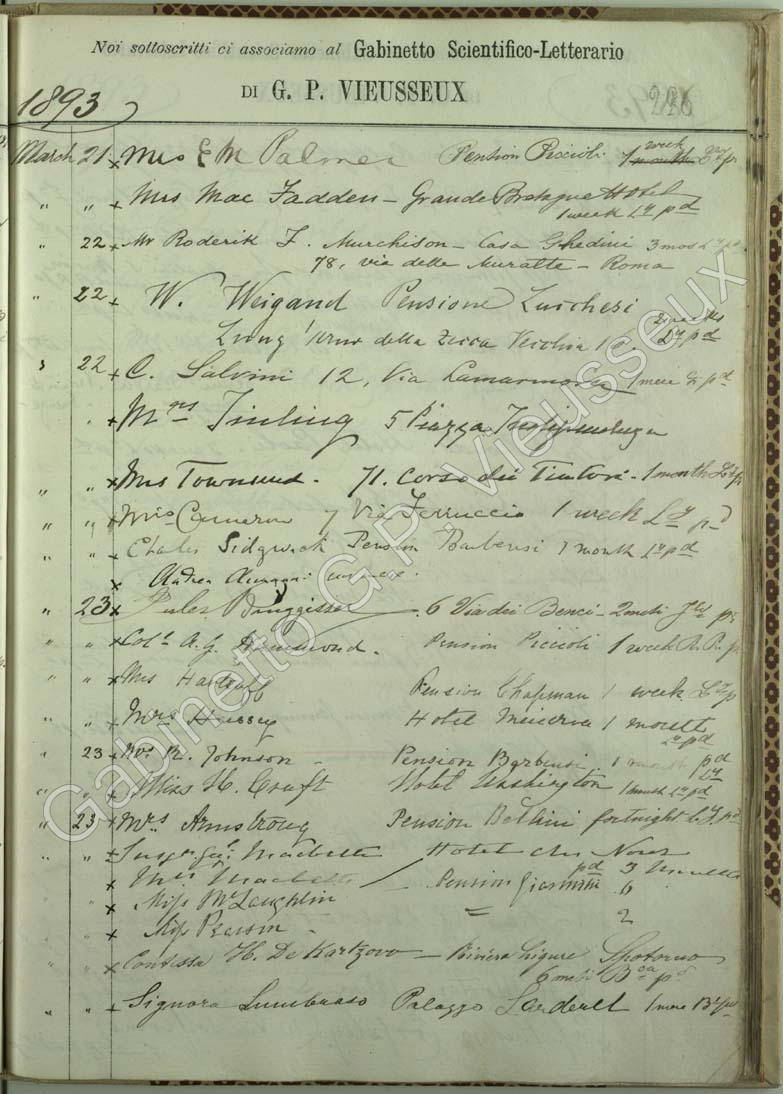 Noi sottoscritti ci associamo al Gabinetto Scientifico-Letterario
DI G. P. VIEUSSEUX
1893
226
March 21 x Mrs E M Palmer Pension Piccioli 1 week month
" " x Mrs Mac Fadden - Grande Bretagne Hotel
1 week Ly pd
" 22 x Mr Roderik J. Murchison - Casa Ghedini 3 mos
78, via delle Muratte - Roma
" 22 x W. Weigand Pensione Luccheri
2 weeks
Lung'Arno della Zecca Vecchia Ly pd
22 x C. Salvini 12, Via Lamarmora 1 mese pd
x Mrs Tinling 5 Piazza
" " x Mrs Townsend. 71. Corso dei Tintori. 1 month
" " x Mrs Cameron 7 Via Ferruccio 1 week Ly pd
" " x Charles Sidgwick Pension Barbensi 1 month Ly pd
x Andrea
" 23 x Jules 6 Via dei Benci - 2 mesi
" " x Col. A. G. Hammond. Pension Piccioli 1 week
" " x Mrs Pension Chapman 1 week
" " x Mrs Hussey Hotel Minerva 1 month
Ly pd
" 23 x R. Johnson - Pension Barbensi. 1 month pd
" " x Miss H. Craft Hotel Washington 1 month Ly pd
" 23 x Mrs Armstrong Pension Bellini fortnight pd
" " x Macbeth Hotel du Nord
x Mrs Macbeth Pension pd 3
x Miss McLaughlin = 6
x Miss Pearson - 2
x Contessa H. De Kartzovo - Riviera Ligure Spotorno
6 mesi pd
" " x Signora Lumbroso Palazzo Larderel 1 mese
Gabinetto G.P. Vieusseux